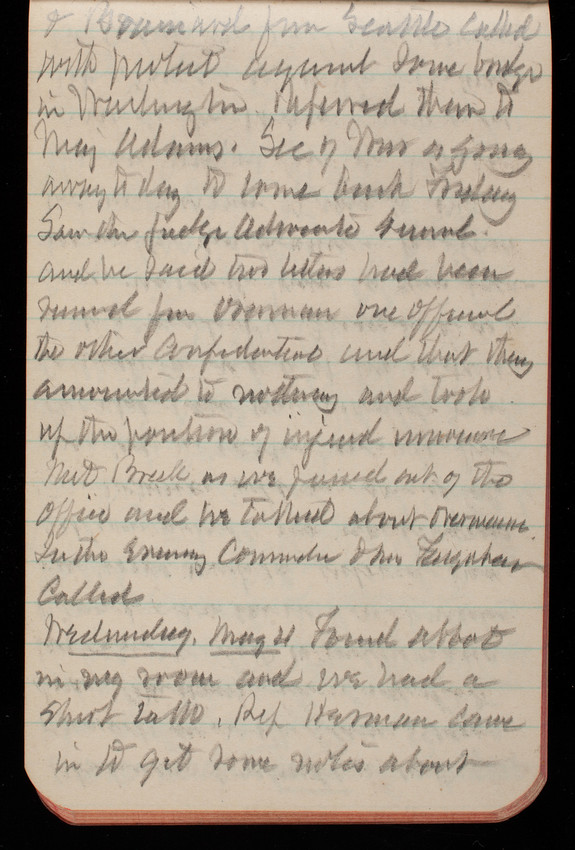 & Brainard from Seattle called
with protest against some bridge
in Washington. Referred them to
Maj Adams. Sec of War is going
away to day to come back Friday
Saw the Judge Advocate General.
and he said two letters had been
received from Overman one official
the other confidential and that they
amounted to nothing and took
up the position of injured innocence
Met Breck as we passed out of the
office and we talked about Overman.
In the Evening Commander & Mrs
Called
Wednesday, May 21 Found Abbot
in my room and we had a
short talk. Rep Herman came
in to get some notes about